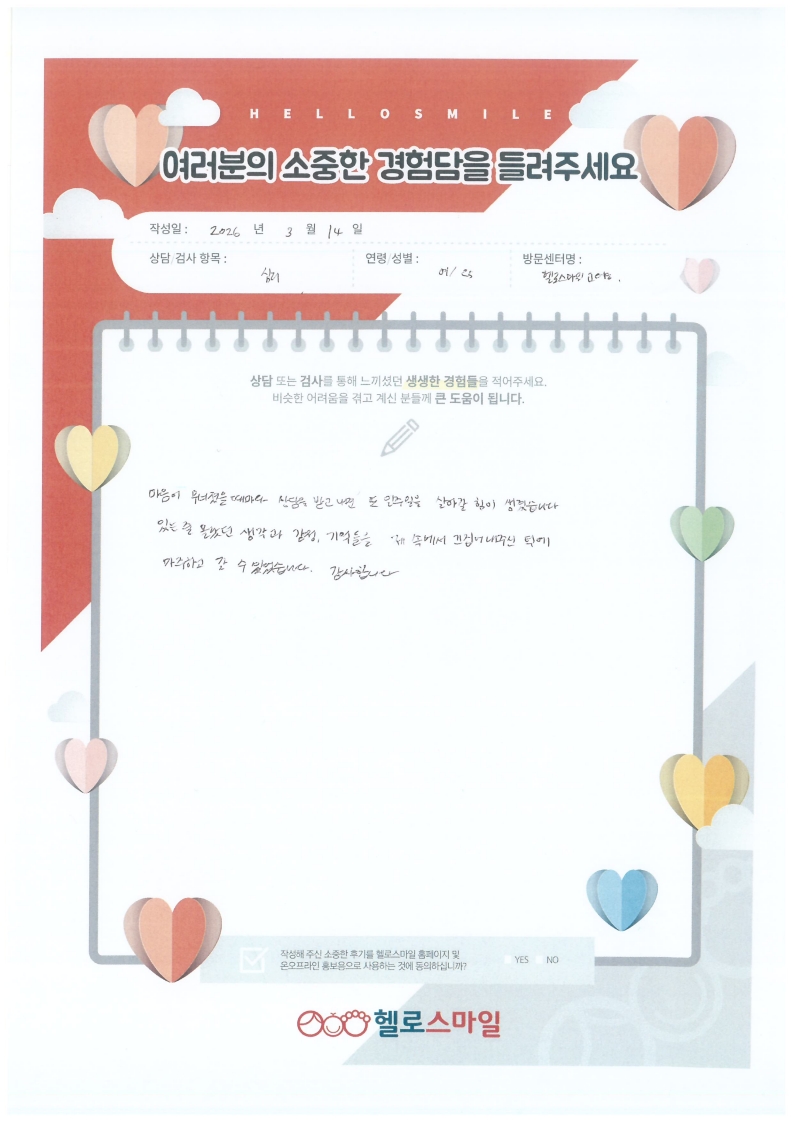 HELLOSMILE
여러분의 소중한 경험담을 들려주세요
작성일 : 2026 년 3 월 14 일
상담/검사 항목 : 심리 연령/성별 : 여/ 방문센터명 : 헬로스마일 고양 .
상담 또는 검사를 통해 느끼셨던 생생한 경험들을 적어주세요.
비슷한 어려움을 겪고 계신 분들께 큰 도움이 됩니다.
마음이 무너졌을 때마다 상담을 받고나면 또 일주일을 살아갈 힘이 생겼습니다
있는 줄 몰랐던 생각과 감정, 기억들을 제 속에서 끄집어내주신 덕에
마주하고 갈 수 있었습니다. 감사합니다
작성해 주신 소중한 후기를 헬로스마일 홈페이지 및
온오프라인 홍보용으로 사용하는 것에 동의하십니까?
YES NO
헬로스마일